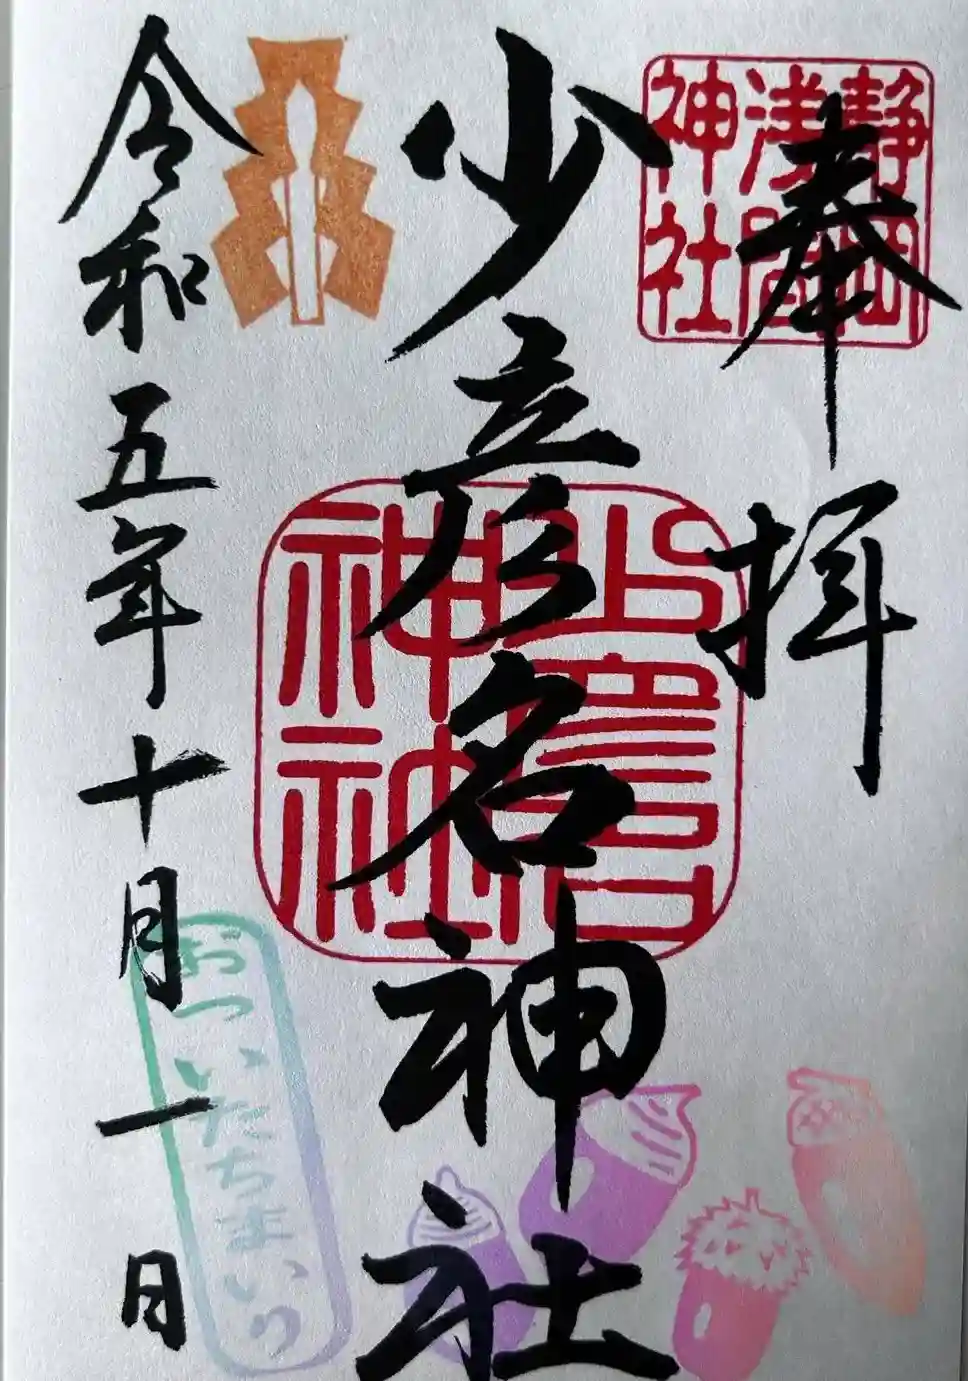 奉拝
静岡
浅間
神社
少彦名神社
神社
令和五年十月一日
おついたちまいり